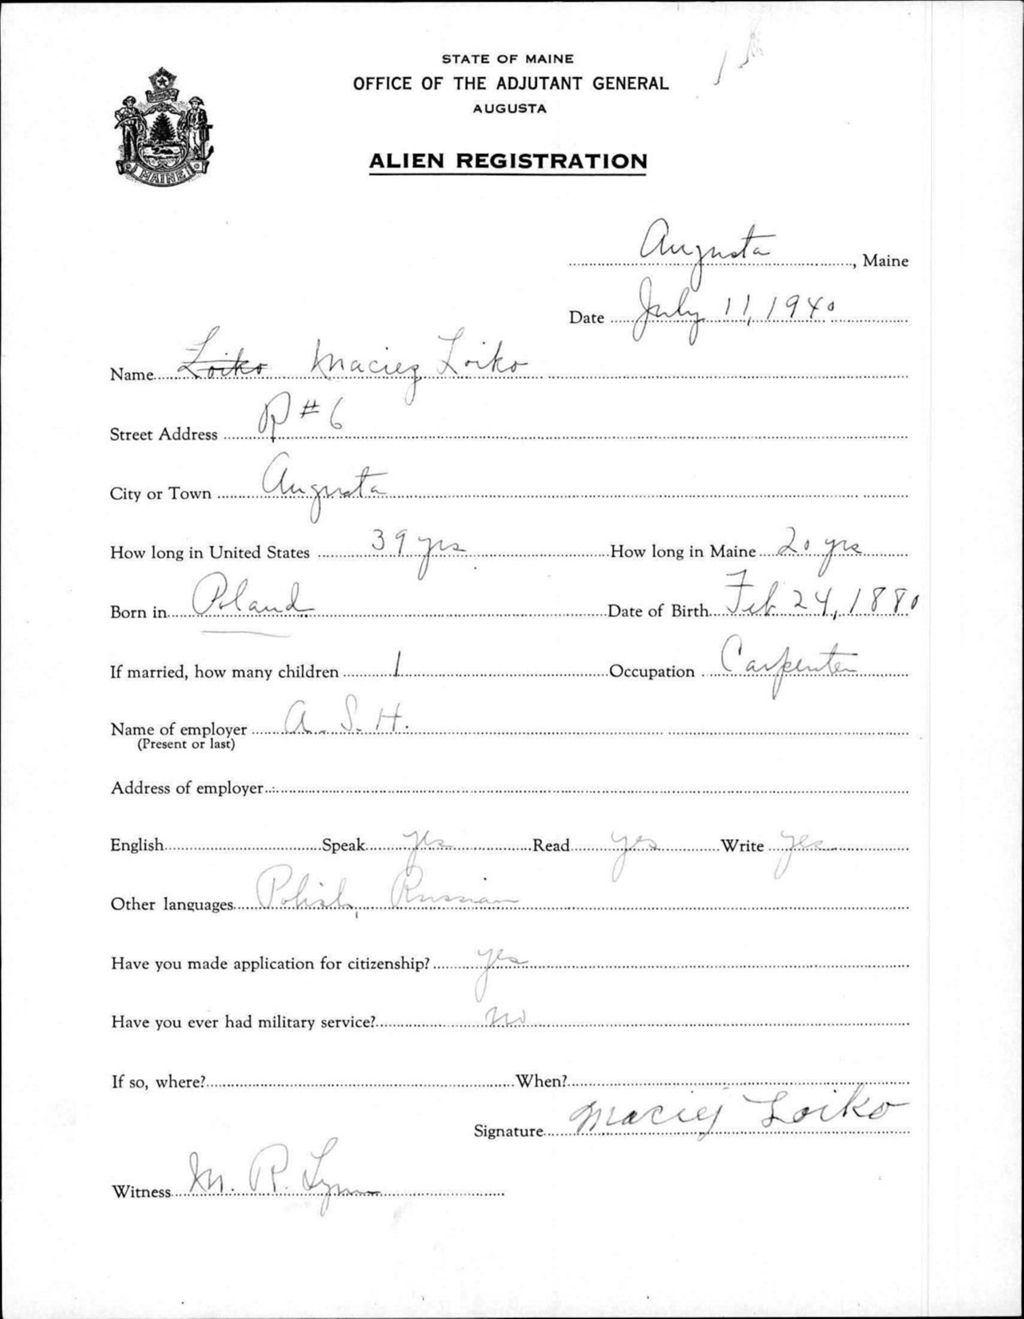 STATE OF MAINE
OFFICE OF THE ADJUTANT GENERAL
AUGUSTA
MAINE
ALIEN REGISTRATION
Augusta, Maine
Date July 11, 1940
Name Loiko Maciez Loiko
Street Address R #6
City or Town Augusta
How long in United States 39 yrs How long in Maine 20 yrs
Born in Poland Date of Birth Feb 24, 1880
If married, how many children 1 Occupation Carpenter
Name of employer A. S. H.
(Present or last)
Address of employer
English Speak yes Read yes Write yes
Other languages Polish, Russian
Have you made application for citizenship? yes
Have you ever had military service? no
If so, where? When?
Signature Maciej Loiko
Witness M. R. Lynn